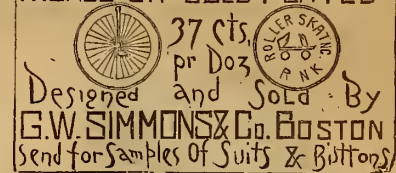 37 cts,
pr Doz
ROLLER SKATNG
RNK
Designed and Sold By
G.W. SIMMONS & Co. BOSTON
Send for Samples Of Suits & Buttons